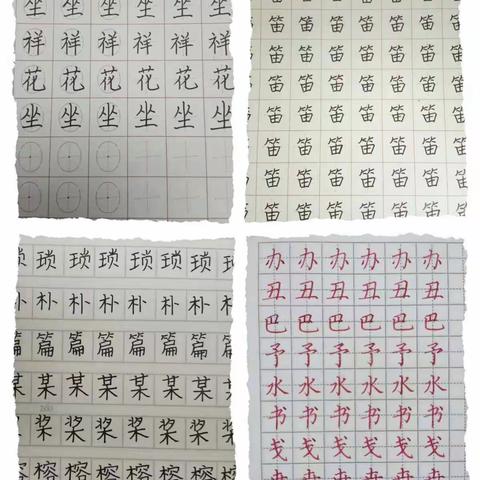 坐 坐 坐 坐 坐 坐
祥 祥 祥 祥 祥 祥
花 花 花 花 花 花
坐 坐 坐 坐 坐 坐
笛 笛 笛 笛 笛 笛
笛 笛 笛 笛 笛 笛
笛 笛 笛 笛 笛 笛
笛 笛 笛 笛 笛 笛
笛 笛 笛 笛 笛 笛
笛 笛 笛 笛 笛 笛
笛 笛 笛 笛 笛 笛
琐 琐 琐 琐 琐 琐 琐
朴 朴 朴 朴 朴 朴 朴
篇 篇 篇 篇 篇 篇 篇 篇
某 某 某 某 某 某 某 某
桨 桨 桨 桨 桨 桨 桨 桨
榕 榕 榕 榕 榕 榕 榕 榕
办 办 办 办 办 办
丑 丑 丑 丑 丑 丑
巴 巴 巴 巴 巴 巴
予 予 予 予 予 予
水 水 水 水 水 水
书 书 书 书 书 书
戋 戋 戋 戋 戋 戋